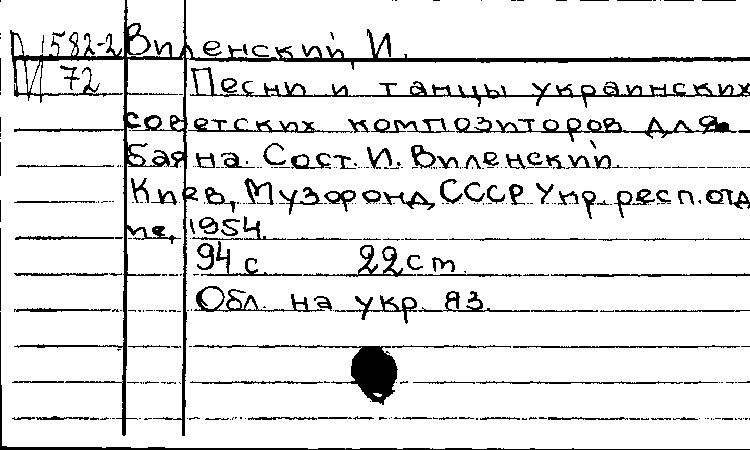 И 582-2 Виленский, И.
И 72 Песни и танцы украинских
советских композиторов для
баяна. Сост. И. Виленский.
Киев, Музфонд СССР Укр. респ. отд
ие, 1954.
94 с. 22 см.
Обл. на укр. яз.